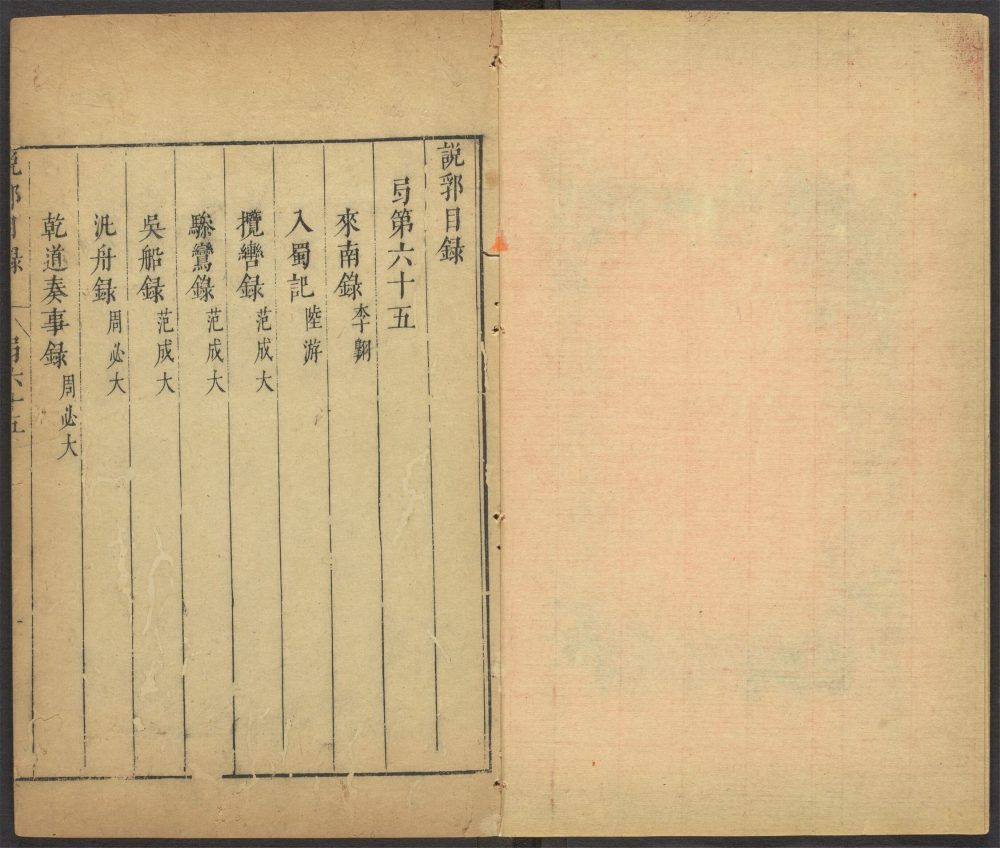 說郛目錄
弓第六十五
來南錄 李翱
入蜀記 陸游
攬轡録 范成大
驂鸞錄 范成大
吳船録 范成大
汎舟録 周必大
乾道奏事録 周必大
說郛目錄 弓六十五